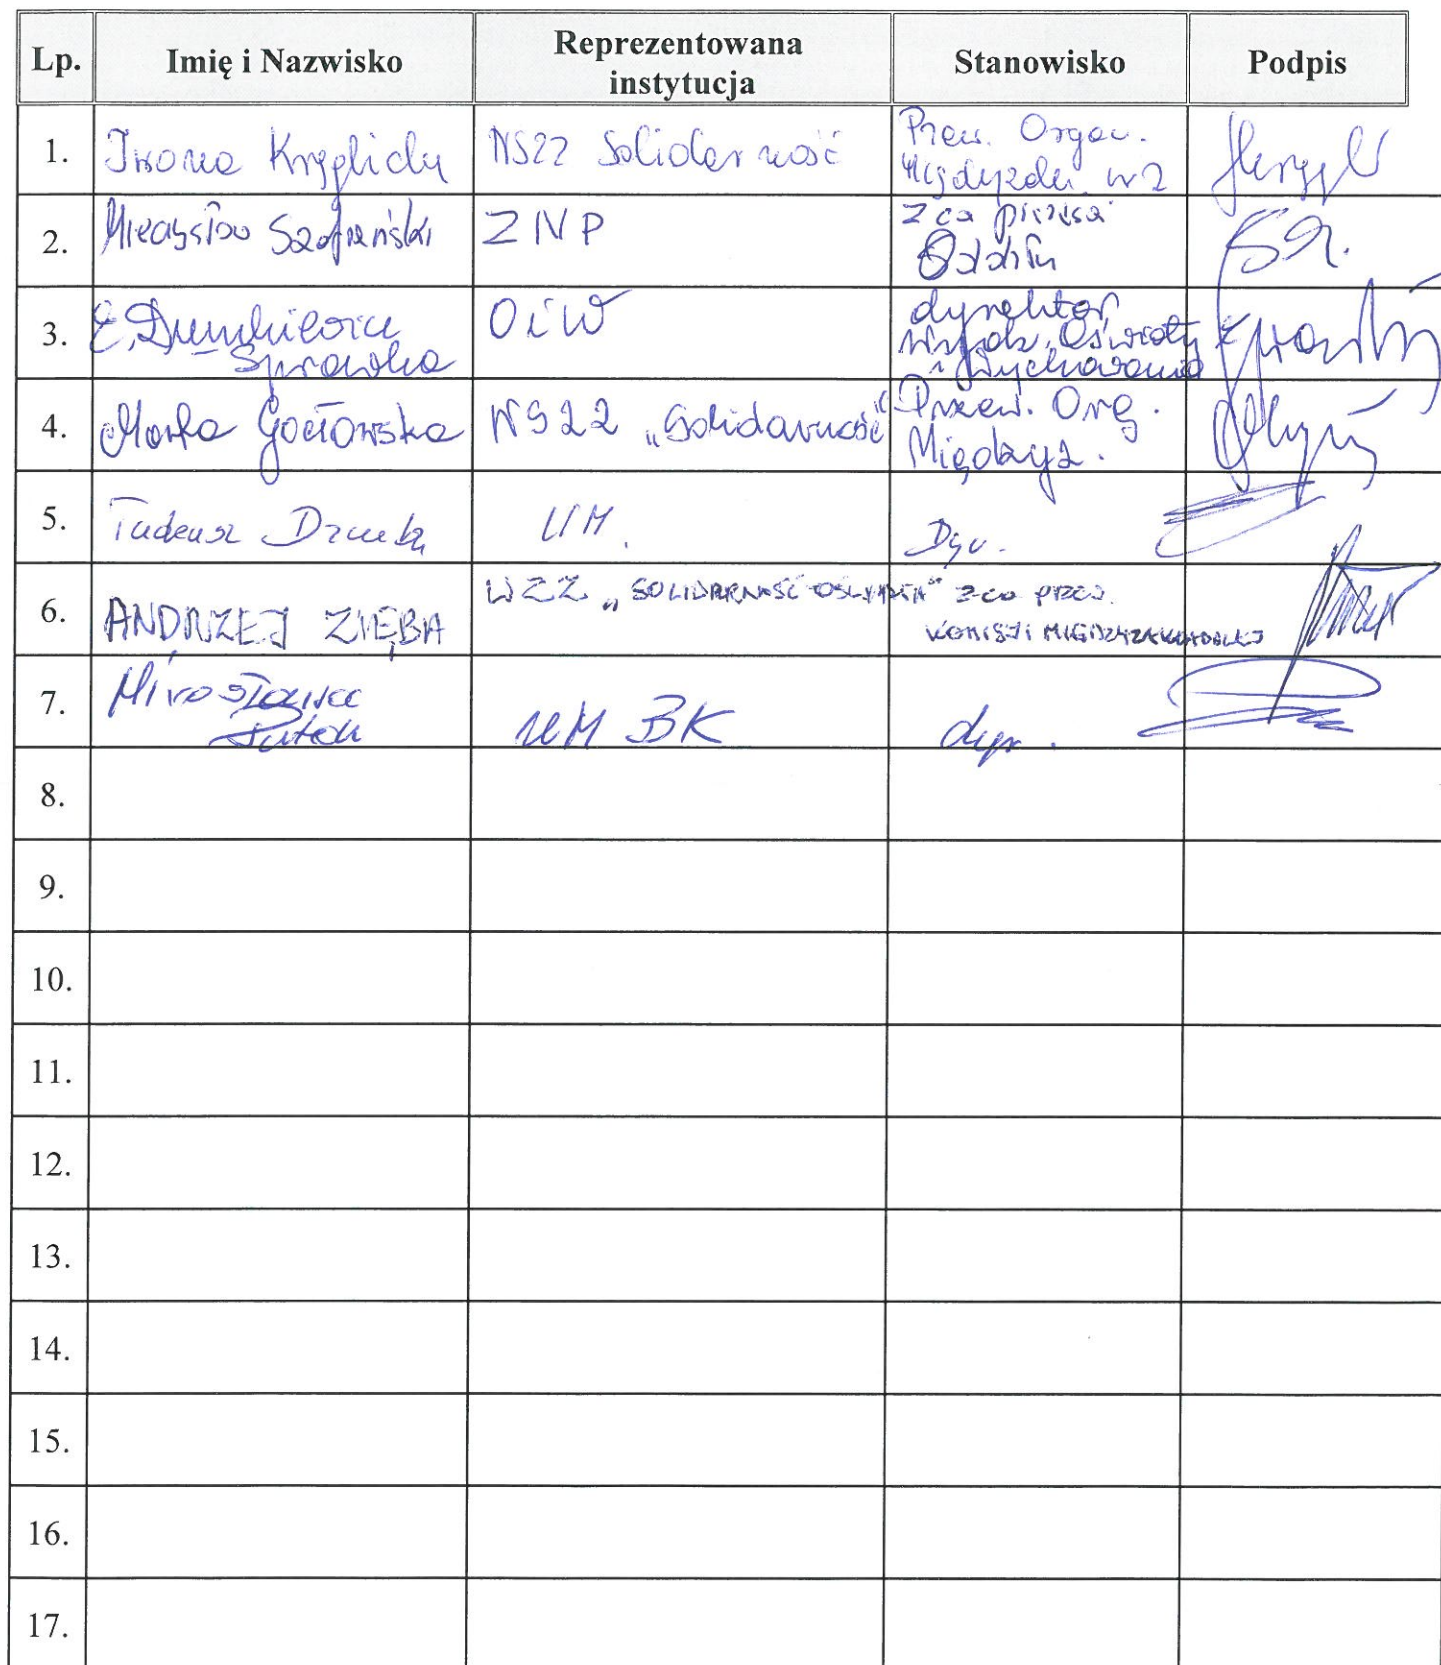 Lp. Imię i Nazwisko Reprezentowana instytucja Stanowisko Podpis
1. Iwona NSZZ Solidarność Przew. Organ.
nr 2
2. Mieczysław Szafrański ZNP z-ca prezesa
Oddziału
3. E. OiW dyrektor
Oświaty
Sprawka i Wychowania
4. Marta Gociowska NSZZ „Solidarność" Przew. Org.
Międzyz.
5. Tadeusz UM. Dyr.
6. ANDRZEJ ZIĘBA WZZ „SOLIDARNOŚĆ-OŚWIATA" z-ca przew.
KOMISJI MIĘDZYZAKŁADOWEJ
7. Mirosława
Putek UM BK dyr.
8.
9.
10.
11.
12.
13.
14.
15.
16.
17.